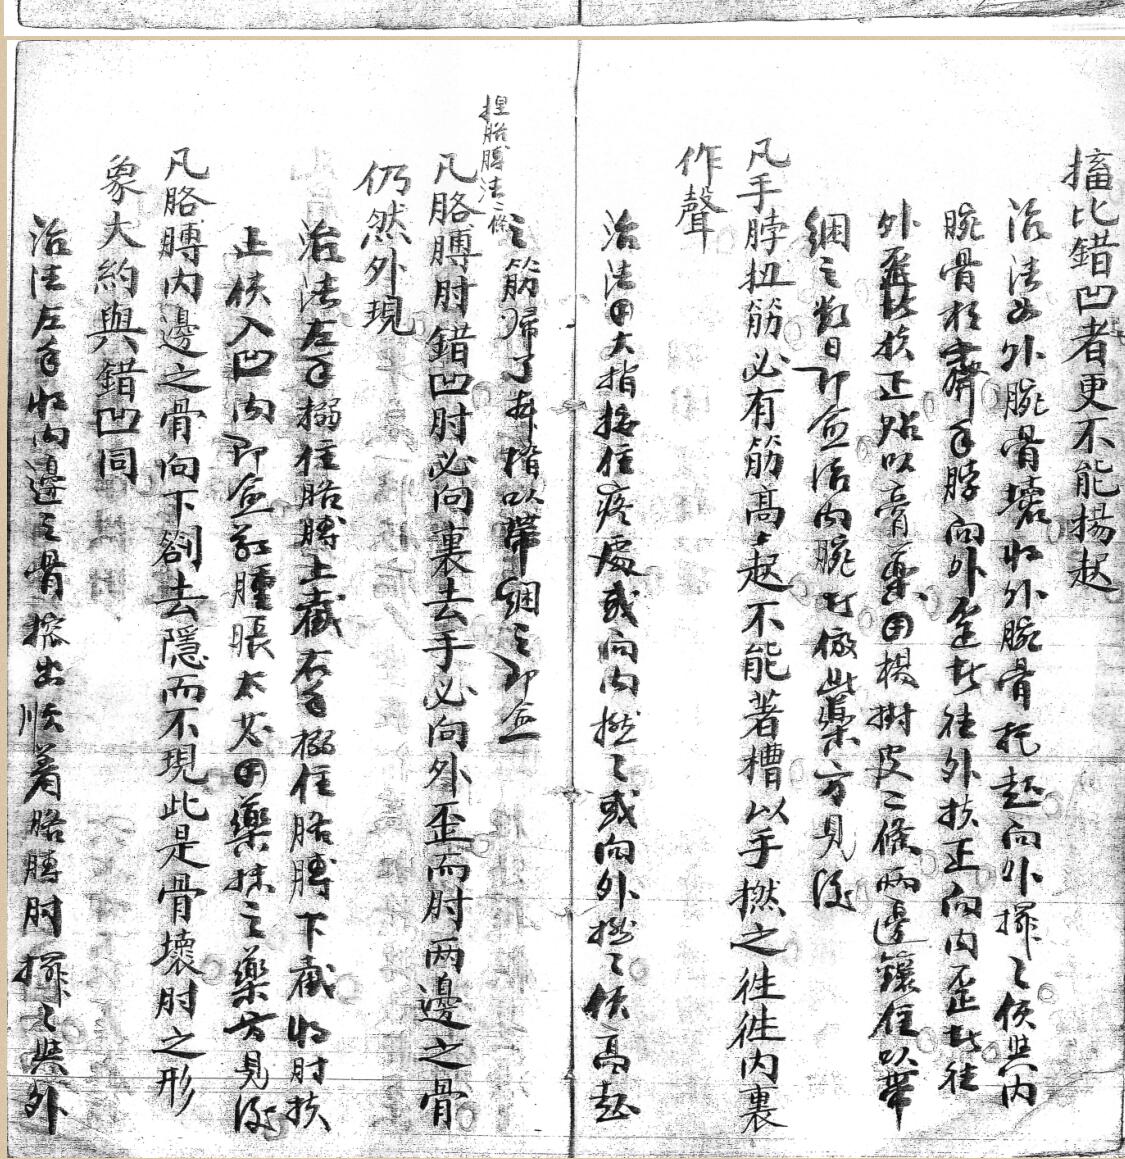 搐比錯凹者更不能揚起
治法如外腕骨壞將外腕骨托起向外揮之使與內
腕骨相齊手脖向外歪者往外扶正向內歪者往
外歪者扶正貼以膏藥用楊樹皮二條兩邊鑲住以帶
綑之數日即愈治內腕者倣此藥方見後
凡手脖扭筋必有筋高之起不能著槽以手撚之往往內裏
作聲
治法用大指按住疼處或向內撚之或向外撚之使高起
之筋歸了奔槽以帶綑之即愈
捏胳膊法二條
凡胳膊肘錯凹肘必向裏去手必向外歪而肘兩邊之骨
仍然外現
治法左手搦住胳膊上截右手搦住胳膊下截將肘扶
正使入凹內即愈若腫脹太甚用藥抹之藥方見後
凡胳膊內邊之骨向下劄去隱而不現此是骨壞肘之形
象大約與錯凹同
治法左手將內邊之骨搽出順着胳膊肘揮之與外